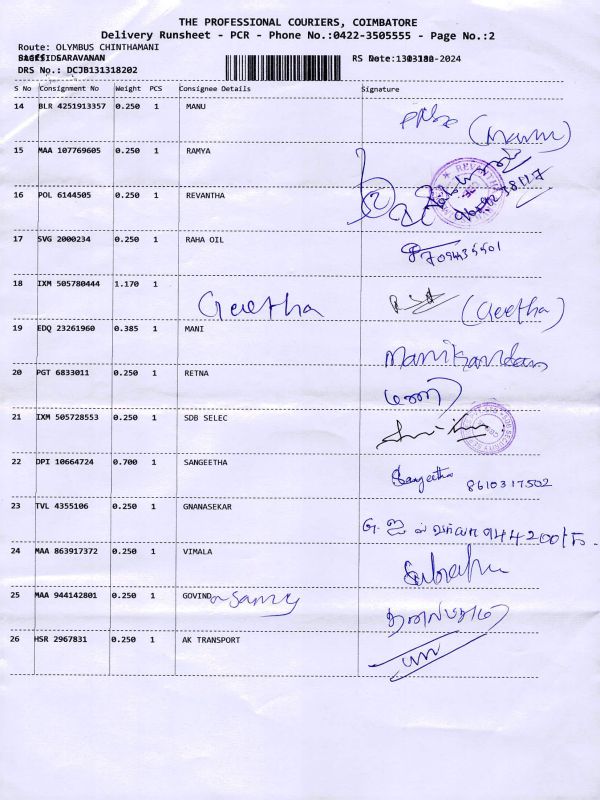 THE PROFESSIONAL COURIERS, COIMBATORE
Delivery Runsheet - PCR - Phone No.:0422-3505555 - Page No.:2
Route: OLYMBUS CHINTHAMANI
SARAVANAN
DRS No.: DCJB131318202
S No Consignment No Weight PCS Consignee Details Signature
14 BLR 4251913357 0.250 1 MANU
(Manu)
15 MAA 107769605 0.250 1 RAMYA
16 POL 6144505 0.250 1 REVANTHA
17 SVG 2000234 0.250 1 RAHA OIL
18 IXM 505780444 1.170 1 Geetha (Geetha)
19 EDQ 23261960 0.385 1 MANI
Manikandan
20 PGT 6833011 0.250 1 RETNA
21 IXM 505728553 0.250 1 SDB SELEC
22 DPI 10664724 0.700 1 SANGEETHA
Sangeetha 8610317502
23 TVL 4355106 0.250 1 GNANASEKAR
24 MAA 863917372 0.250 1 VIMALA
25 MAA 944142801 0.250 1 GOVINDa Samy
26 HSR 2967831 0.250 1 AK TRANSPORT